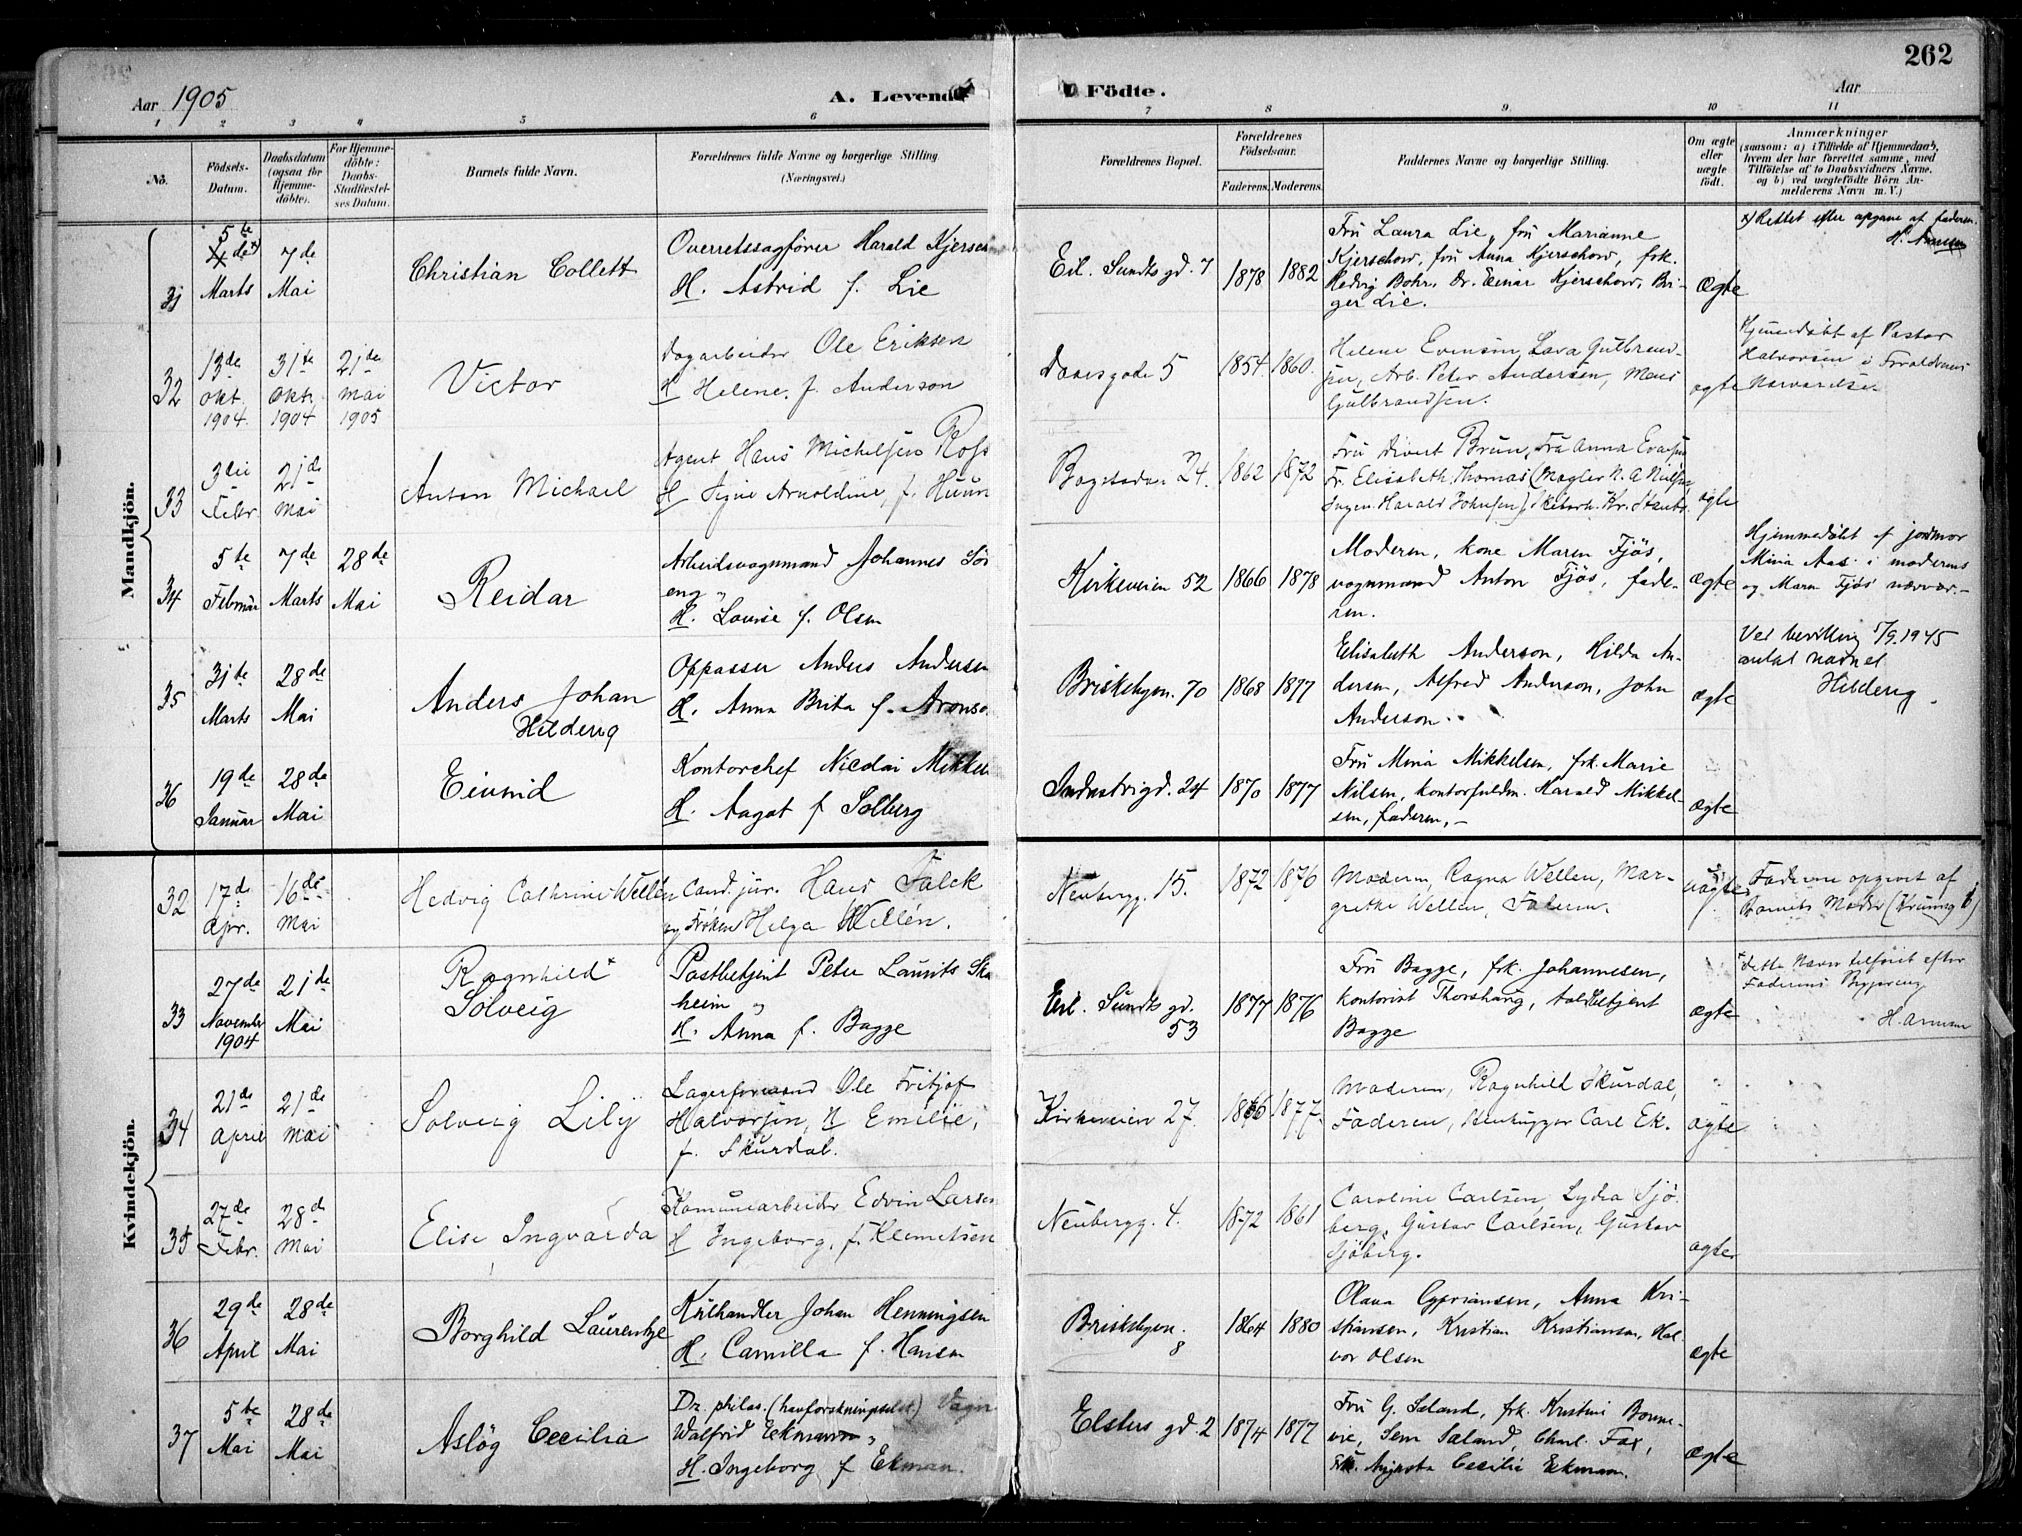 262
Aar 1905
A. Levende Födte.
Aar
1 2 3 4 5 6 7 8 9 10 11
No.
Födsels-Datum.
Daabsdatum (ogsaa for Hjemme-döbte).
For Hjemme-döbte: Daabs-Stadfæstel-ses Datum.
Barnets fulde Navn.
Forældrenes fulde Navne og borgerlige Stilling.
(Næringsvei.)
Forældrenes Bopæl.
Forældrenes Födselsaar.
Faderens. Moderens.
Faddernes Navne og borgerlige Stilling.
Om ægte eller uægte födt.
Anmærkninger
(saasom: a) i Tilfælde af Hjemmedaab,
hvem der har forrettet samme, med
Tilföielse af to Daabsvidners Navne.
og b) ved uægtefödte Börn An-
melderens Navn m. V.)
Mandkjön.
31
5te
Marts
7de
Mai
Christian Collett
Overretssagförer Harald Kjersch
H. Astrid f. Lie
Eil. Sundts gd. 7
1878 1882
Fru Laura Lie, fru Marianne
Kjerschow, fru Anna Kjerschow, frk.
Hedvig Bohr, Dr. Einar Kjerschow, Bir-
ger Lie.
Ægte
x) Rettet efter opgave af faderen.
32
13de
Okt.
1904
31te
Okt.
1904
21de
Mai
1905
Victor
Dagarbeider Ole Eriksen
H Helene, f. Anderson
Daasgade 5
1854 1860
Helene Evensen, Lova Gulbrand-
sen, Arb. Peter Andersen, Mons
Gulbrandsen.
ægte
Hjemmedöbt af Pastor
Halvorsen i Forældrenes
Nærværelse.
33
3die
Febr.
21de
Mai
Anton Michael
Agent Hans Michelsen Ross
H Signe Arnoldine, f. Huun
Bogstadvn 24.
1862 1872
Fru Divert Brun, Fru Anna
Fr. Elisabeth Thomas (Mægler N. A Nielsen,
Ingen. Harald Johnsen)
ægte
34
5te
Februar
7de
Marts
28de
Mai
Reidar
Arbeidsvognmand Johannes Sör
eng "
H. Louise f. Olsen
Kirkeveien 52
1866 1878
Moderen, kone Maren Fjös,
vognmand Anton Fjös, fade-
ren.
ægte
Hjemmedöbt af jordmor
Mina Aas i moderens
og Maren Fjös' nærvær.-
35
31te
Marts
28de
Mai
Anders Johan
Hilderig
Oppasser Anders Andersen
H. Anna Brita f. Aronso
Briskebyvn. 70
1868 1877
Elisabeth Anderson, Hilda An-
dersen, Alfred Anderson, John
Anderson.
ægte
Ved bevilling 5/9 1945
antat navnet
Hilderig
36
19de
Januar
28de
Mai
Eivind
Kontorchef Nicolai Mikkel
H. Aagot f Solberg
Industrigd. 24
1870 1877
Fru Mina Mikkelsen, frk. Marie
Nilsen, kontorfuldm. Harald Mikkel-
sen, faderen,-
Ægte
Kvindekjön.
32
17de
Apr.
16de
Mai
Hedvig Cathrine Wellén
Cand. jur. Hans Falck
og Fröken Helga Wellén.
Neubergg. 15.
1872 1876
Moderen, Ragna Wellen, Mar-
grethe Wellen, Faderen.
uægte
Faderen opgivet af
Barnets Moder
33
27de
November
1904
21de
Mai
Ragnhild x
Solveig
Postbetjent Peter Laurits Ska
heim "
H. Anna f. Bagge
Eil. Sundts gd.
53
1877 1876
Fru Bagge, frk. Johannesen,
kontorist Thorshaug, toldbetjent
Bagge
ægte
x Dette Navn tilföiet efter
Faderens Begjæring
34
21de
April
21de
Mai
Solveig Lily
Lagerformand Ole Fritjof
Halvorsen, H Emilie,
f. Skurdal.
Kirkeveien 27.
1876 1877
Moderen, Ragnhild Skurdal,
Faderen, Stenhugger Carl Ek.
ægte
35
27de
Febr.
28de
Mai
Elise Ingvarda
Komunearbeider Edvin Larsen
H Ingeborg, f. Klemetsen
Neubergg. 4.
1872 1861
Caroline Carlsen, Lydia Sjö-
berg, Gustav Carlsen, Gustav
Sjöberg.
ægte
36
29de
April
28de
Mai
Borghild Laurentze
Kulhandler Johan Henningsen
H. Camilla f. Hansen
Briskebyvn.
8
1864 1880
Olava Cypriansen, Anna Kri-
stiansen, Kristian Kristiansen, Hal-
vor Olsen
ægte
37
5te
Mai
28de
Mai
Aslög Cecilia
Dr. philos. (havforskningsselsk) Vagn
Walfrid Eckmann "
H. Ingeborg f Ekman.
Elsters gd. 2
1874 1877
Fru G. Sæland, frk. Kristine Bonne-
vie, Sem Sæland, Charl. Fax,
Frk. Augusta Cecilie Eckmann.
ægte